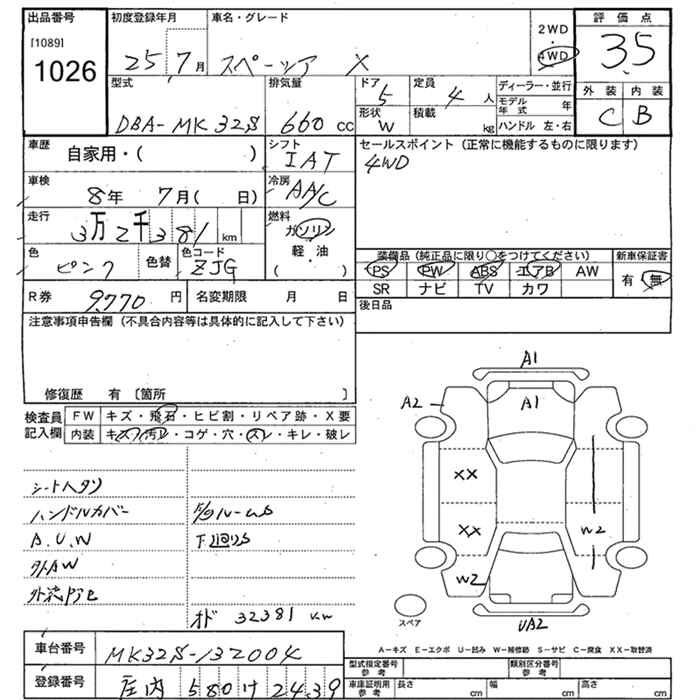 出品番号
[1089]
1026
初度登録年月
25 7月
車名・グレード
スペーシア X
2WD
・
4WD
評価点
3.5
外装 内装
C B
型式
DBA-MK32S
排気量
660 cc
ドア
5
形状
W
定員
4 人
積載
kg
ディーラー・並行
モデル年式 年
ハンドル 左・右
車歴
自家用・( )
シフト
IAT
車検
8年 7月( 日)
冷房
AAC
走行
3万2千381 km
燃料
ガソリン
軽・油
( ・ )
色
ピンク
色替
色コード
ZJG
R券 9770 円
名変期限 月 日
セールスポイント (正常に機能するものに限ります)
4WD
装備品 (純正品に限り○をつけてください)
PS PW ABS エアB AW
SR ナビ TV カワ
新車保証書
有・無
後日品
注意事項申告欄 (不具合内容等は具体的に記入して下さい)
修復歴 有 〔箇所 〕
検査員記入欄
FW キズ・飛石・ヒビ割・リペア跡・X要
内装 キズ・汚レ・コゲ・穴・スレ・キレ・破レ
シートヘタリ
ハンドルカバー
A.U.W
外AW
下廻りS
オド 32381 km
A1
A2
A1
XX
XX
W2
W2
UA2
スペア
A-キズ E-エクボ U-凹み W-補修跡 S-サビ C-腐食 XX-取替済
車台番号
MK32S-132004
登録番号
庄内 580 け 2439
型式指定番号 参考
類別区分番号 参考
車庫証明用 参考
長さ cm
幅 cm
高さ cm